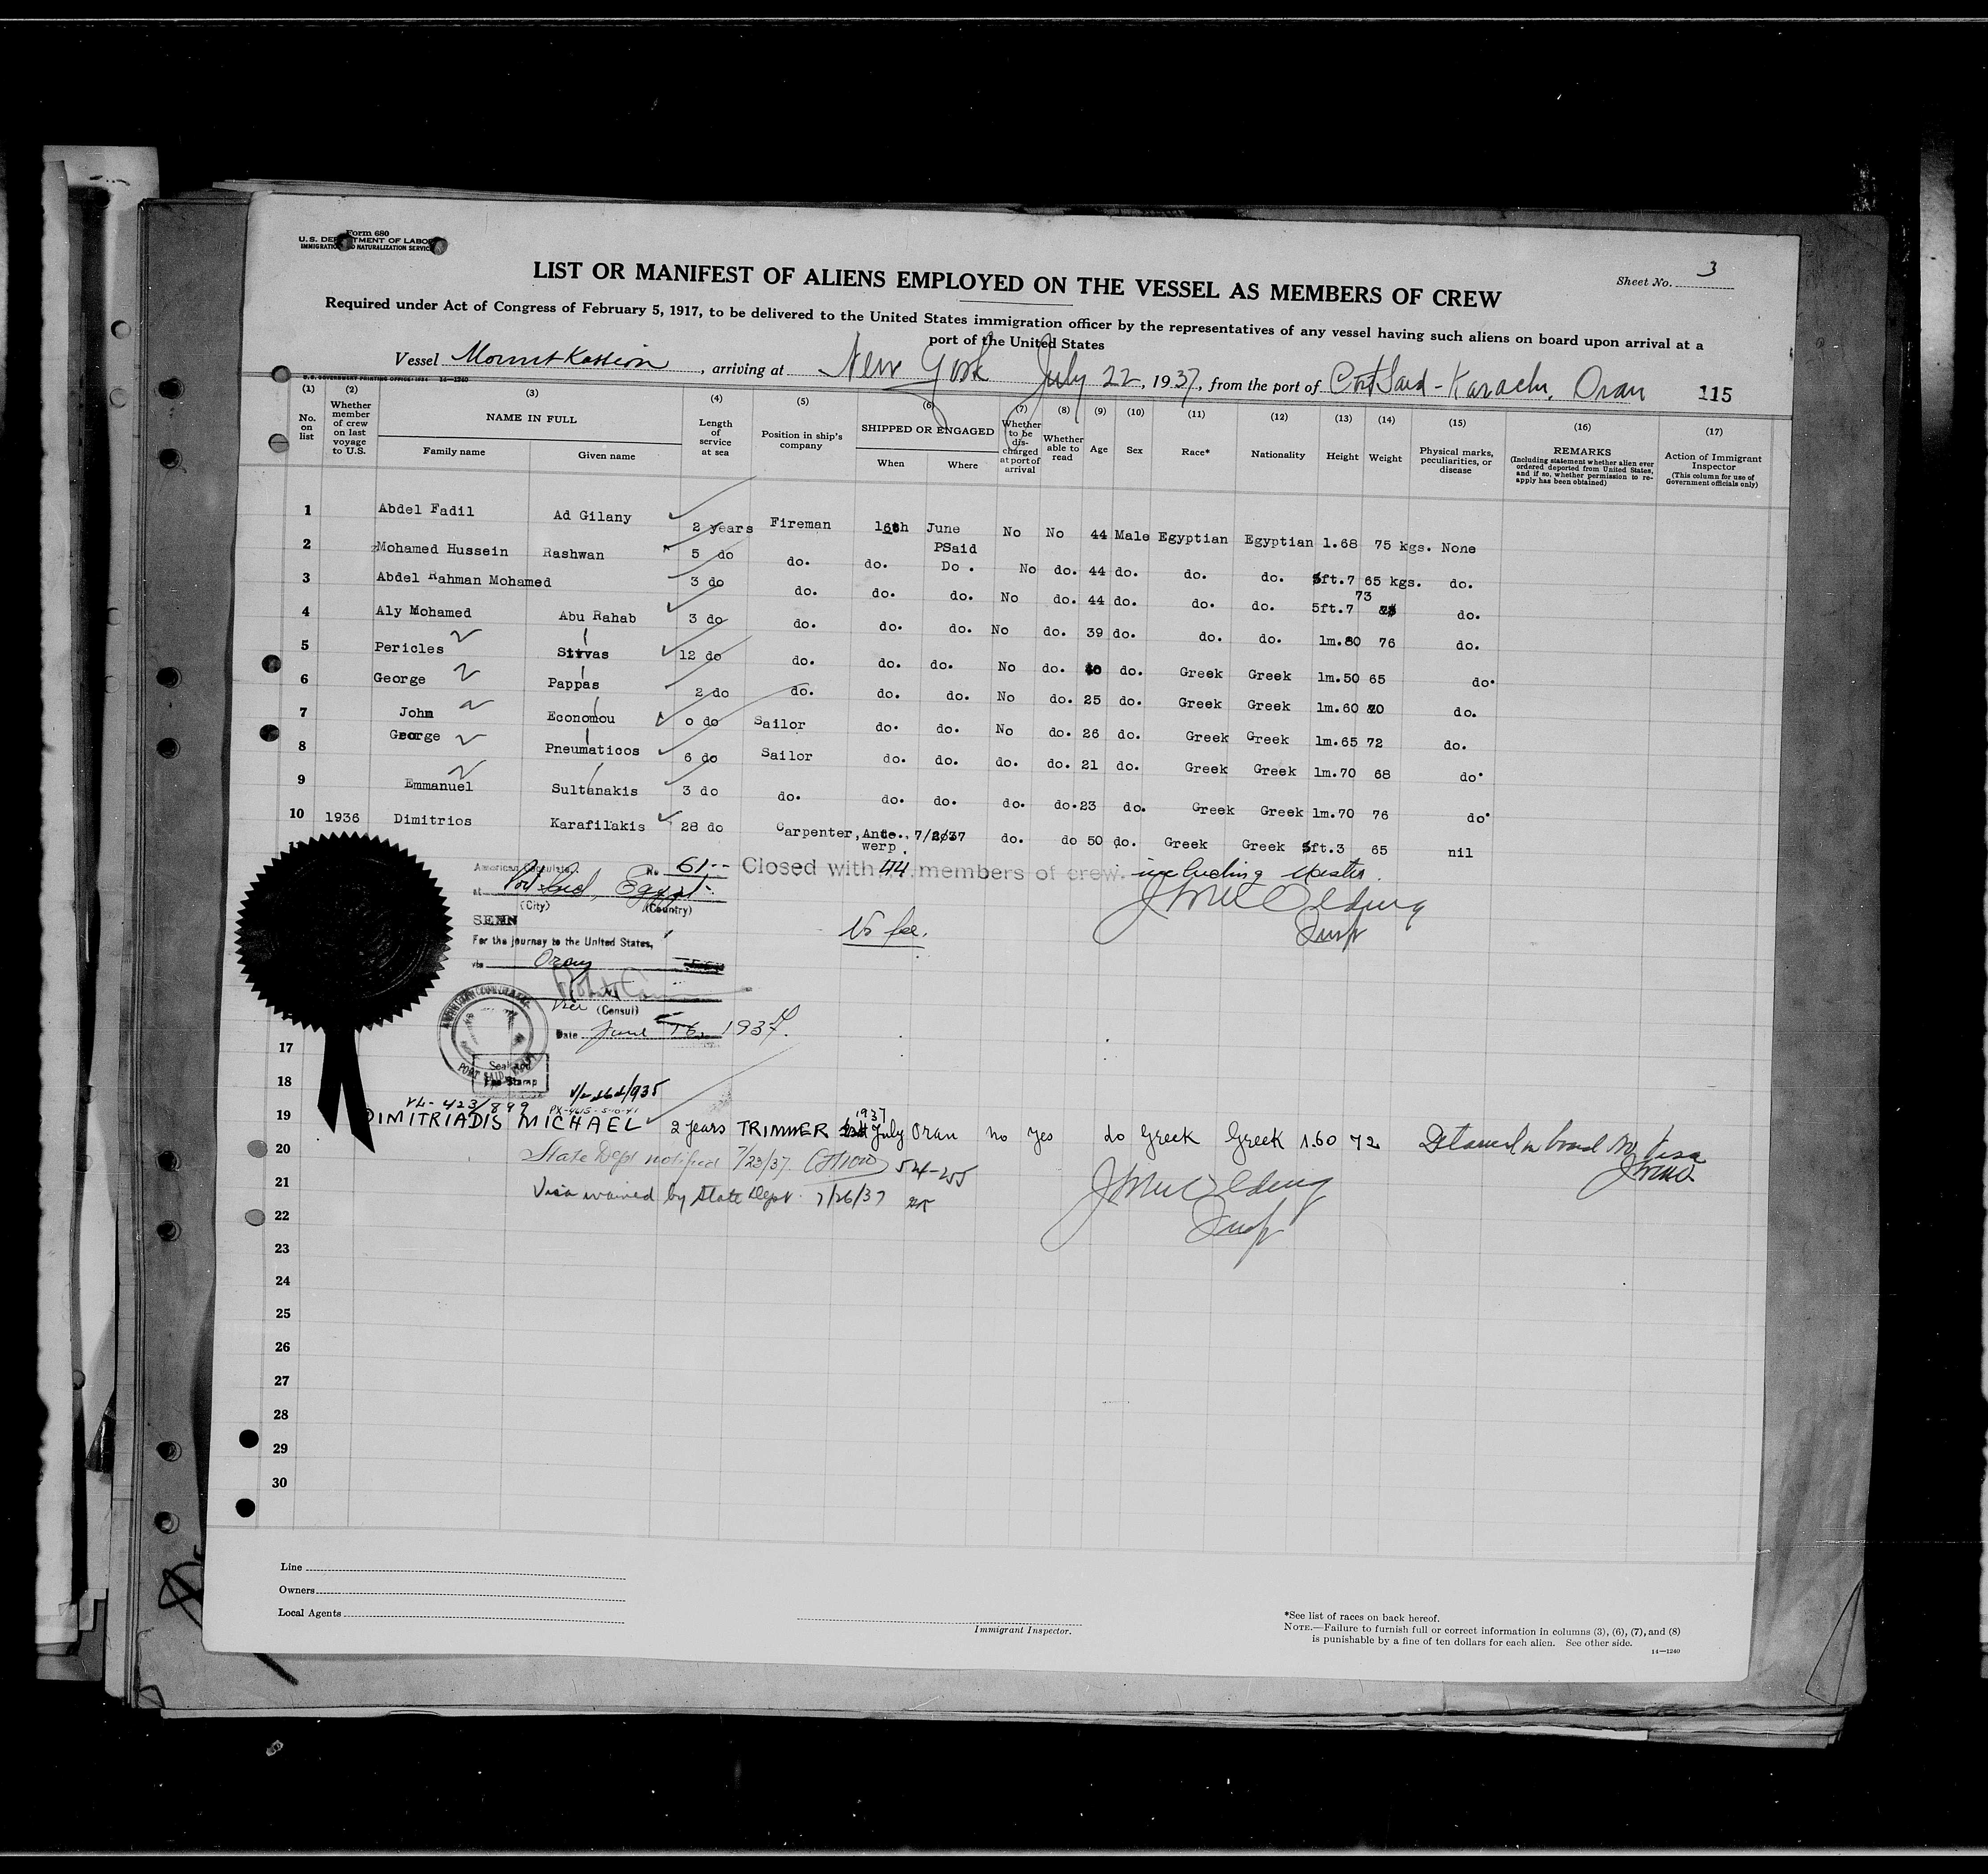 Form 680
U.S. DEPARTMENT OF LABOR
IMMIGRATION AND NATURALIZATION SERVICE
LIST OR MANIFEST OF ALIENS EMPLOYED ON THE VESSEL AS MEMBERS OF CREW
Sheet No. 3
Required under Act of Congress of February 5, 1917, to be delivered to the United States immigration officer by the representatives of any vessel having such aliens on board upon arrival at a
port of the United States
Vessel Mount Kassion, arriving at New York July 22, 1937, from the port of Port Said - Karachi, Oran 115
U.S. GOVERNMENT PRINTING OFFICE: 1934 14—1240
(1) (2) (3) (4) (5) (6) (7) (8) (9) (10) (11) (12) (13) (14) (15) (16) (17)
No. on list
Whether member of crew on last voyage to U.S.
NAME IN FULL
Family name
Given name
Length of service at sea
Position in ship's company
SHIPPED OR ENGAGED
When
Where
Whether to be discharged at port of arrival
Whether able to read
Age
Sex
Race*
Nationality
Height
Weight
Physical marks, peculiarities, or disease
REMARKS
(Including statement whether alien ever ordered deported from United States, and if so, whether permission to reapply has been obtained)
Action of Immigrant Inspector
(This column for use of Government officials only)
1 Abdel Fadil Ad Gilany 2 years Fireman 16th June PSaid No No 44 Male Egyptian Egyptian 1.68 75 kgs. None
2 Mohamed Hussein Rashwan 5 do do. do. Do. No do. 44 do. do. do. 5ft.7 65 kgs. do.
3 Abdel Rahman Mohamed 3 do do. do. do. No do. 44 do. do. do. 5ft.7 73 do.
4 Aly Mohamed Abu Rahab 3 do do. do. do. No do. 39 do. do. do. 1m.80 76 do.
5 Pericles Stvas 12 do do. do. do. No do. 40 do. Greek Greek 1m.50 65 do.
6 George Pappas 2 do do. do. do. No do. 25 do. Greek Greek 1m.60 do.
7 John Economou 0 do Sailor do. do. No do. 26 do. Greek Greek 1m.65 72 do.
8 George Pneumaticos 6 do Sailor do. do. do. do. 21 do. Greek Greek 1m.70 68 do.
9 Emmanuel Sultanakis 3 do do. do. do. do. do. 23 do. Greek Greek 1m.70 76 do.
10 1936 Dimitrios Karafilakis 28 do Carpenter, Antwerp do. do 50 do. Greek Greek 5ft.3 65 nil
American Consulate No 61--
Closed with 44 members of crew. including Master.
at Port Said, Egypt
(City) (Country)
SEEN
J McC Elding
Insp
No fee.
For the journey to the United States,
via Oran
Vice (Consul)
Date June 16, 1937
PORT SAID
Seal and
Fee Stamp
17
18
VL-423/899
19 DIMITRIADIS MICHAEL 2 years TRIMMER 1937 July Oran no yes do Greek Greek 1.60 72 Detained on board No Visa
20 State Dept notified 7/23/37 54-255
21 Visa waived by State Dept. 7/26/37
Insp
22
23
24
25
26
27
28
29
30
Line
Owners
Local Agents
Immigrant Inspector.
*See list of races on back hereof.
NOTE.—Failure to furnish full or correct information in columns (3), (6), (7), and (8)
is punishable by a fine of ten dollars for each alien. See other side.
14—1240